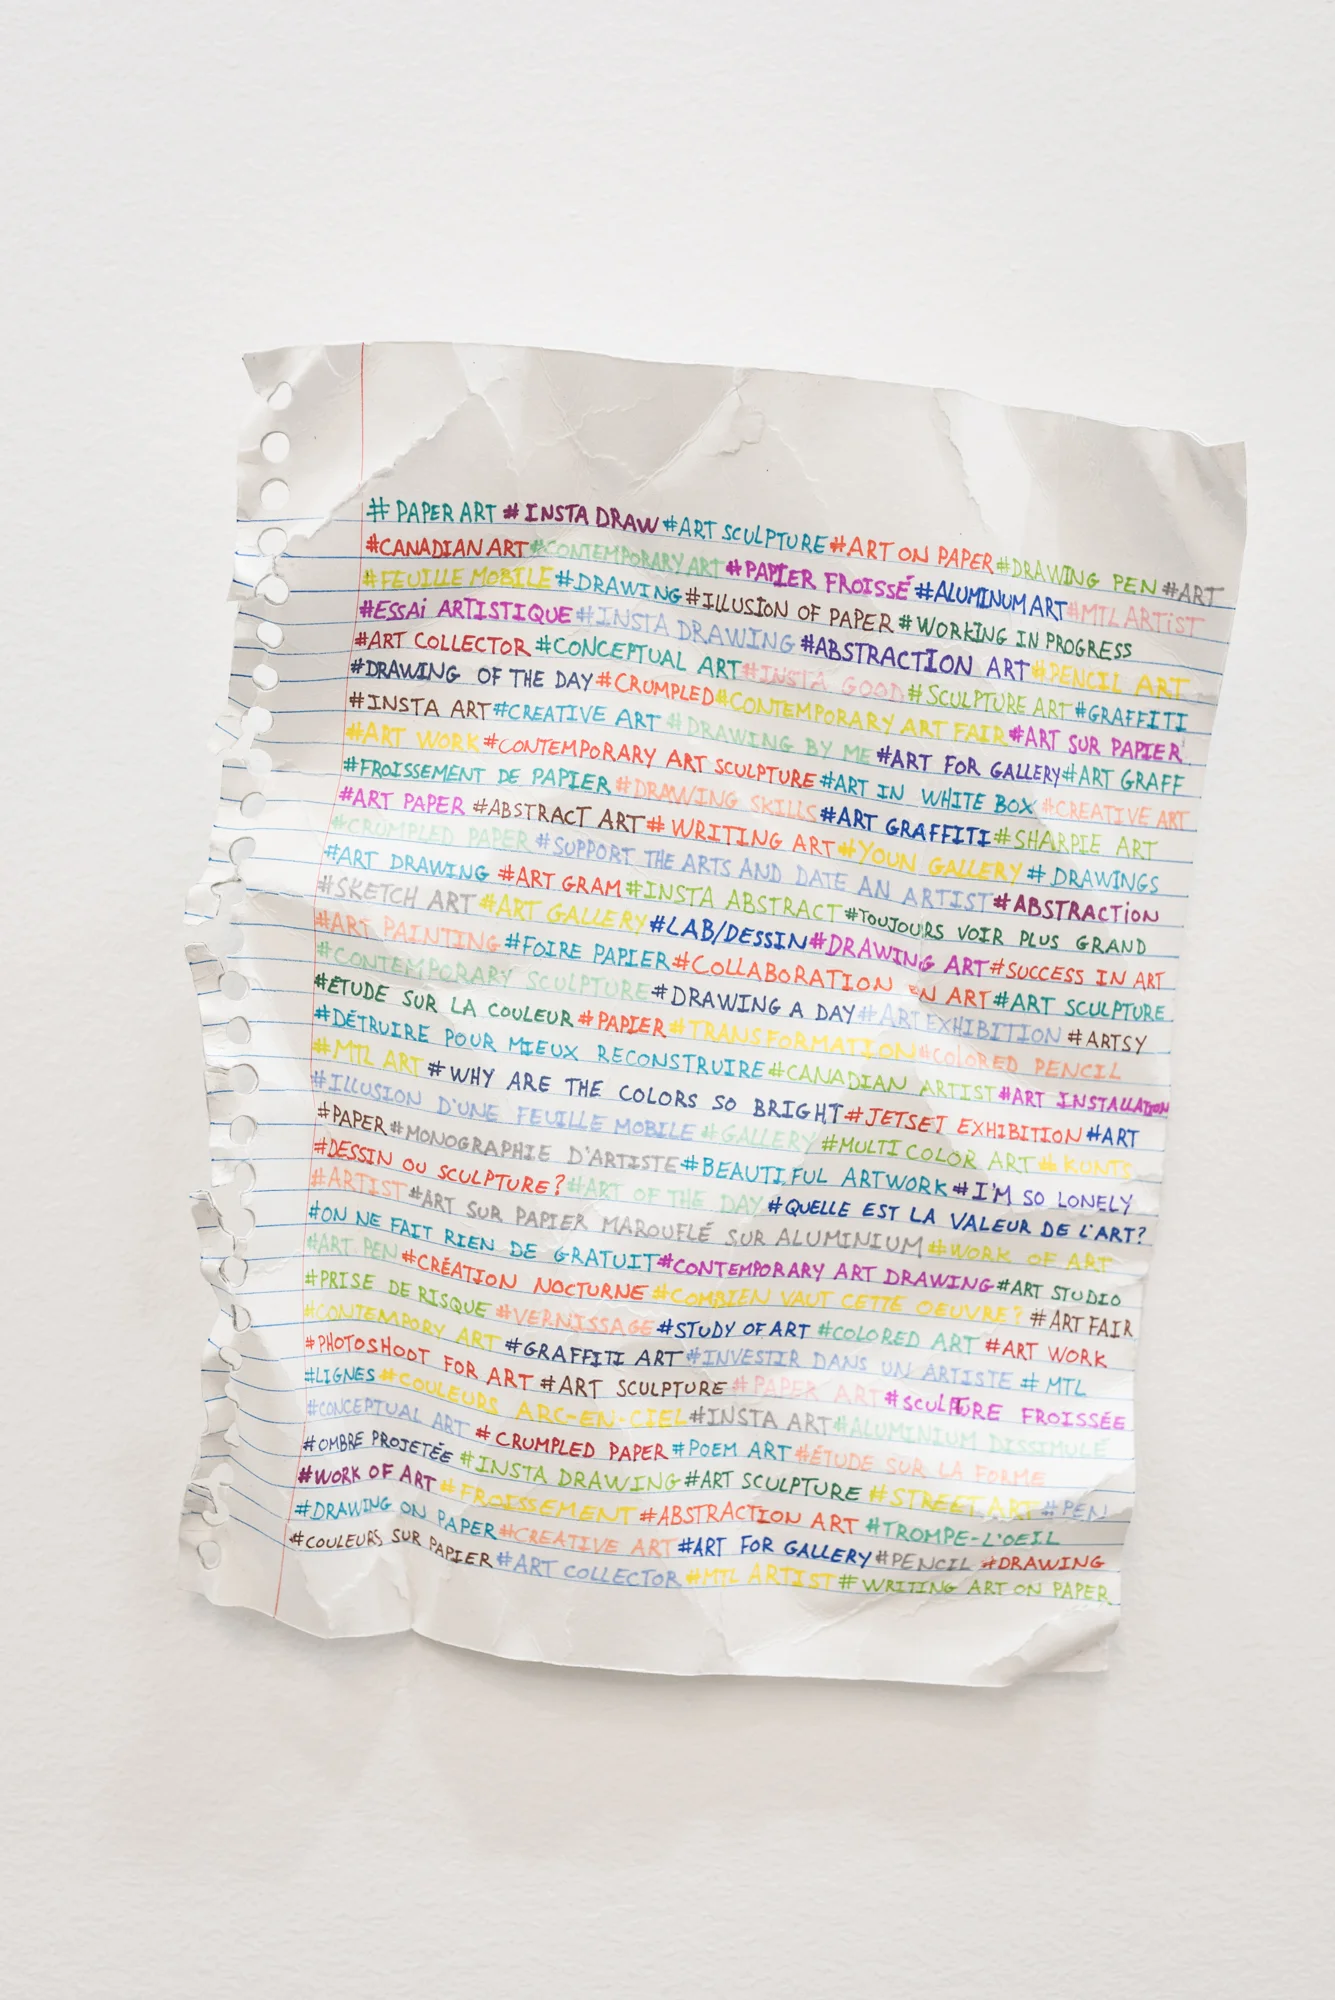 # PAPER ART # INSTA DRAW #ART SCULPTURE #ART ON PAPER #DRAWING PEN #ART
#CANADIAN ART #CONTEMPORARY ART #PAPIER FROISSÉ #ALUMINUM ART #MTL ARTIST
#FEUILLE MOBILE #DRAWING #ILLUSION OF PAPER #WORKING IN PROGRESS
#ESSAI ARTISTIQUE #INSTA DRAWING #ABSTRACTION ART #PENCIL ART
#ART COLLECTOR #CONCEPTUAL ART #INSTA GOOD #SCULPTURE ART #GRAFFITI
#DRAWING OF THE DAY #CRUMPLED #CONTEMPORARY ART FAIR #ART SUR PAPIER
#INSTA ART #CREATIVE ART #DRAWING BY ME #ART FOR GALLERY #ART GRAFF
#ART WORK #CONTEMPORARY ART SCULPTURE #ART IN WHITE BOX #CREATIVE ART
#FROISSEMENT DE PAPIER #DRAWING SKILLS #ART GRAFFITI #SHARPIE ART
#ART PAPER #ABSTRACT ART # WRITING ART #YOUN GALLERY # DRAWINGS
#CRUMPLED PAPER #SUPPORT THE ARTS AND DATE AN ARTIST #ABSTRACTION
#ART DRAWING #ART GRAM #INSTA ABSTRACT #TOUJOURS VOIR PLUS GRAND
#SKETCH ART #ART GALLERY #LAB/DESSIN #DRAWING ART #SUCCESS IN ART
#ART PAINTING #FOIRE PAPIER #COLLABORATION EN ART #ART SCULPTURE
#CONTEMPORARY SCULPTURE #DRAWING A DAY #ART EXHIBITION #ARTSY
#ÉTUDE SUR LA COULEUR #PAPIER #TRANSFORMATION #COLORED PENCIL
#DÉTRUIRE POUR MIEUX RECONSTRUIRE #CANADIAN ARTIST #ART INSTALLATION
#MTL ART #WHY ARE THE COLORS SO BRIGHT #JETSET EXHIBITION #ART
#ILLUSION D'UNE FEUILLE MOBILE #GALLERY #MULTI COLOR ART # KUNTS
#PAPER #MONOGRAPHIE D'ARTISTE #BEAUTIFUL ARTWORK #I'M SO LONELY
#DESSIN OU SCULPTURE? #ART OF THE DAY #QUELLE EST LA VALEUR DE L'ART?
#ARTIST #ART SUR PAPIER MAROUFLÉ SUR ALUMINIUM #WORK OF ART
#ON NE FAIT RIEN DE GRATUIT #CONTEMPORARY ART DRAWING #ART STUDIO
#ART PEN #CRÉATION NOCTURNE #COMBIEN VAUT CETTE OEUVRE? #ART FAIR
#PRISE DE RISQUE #VERNISSAGE #STUDY OF ART #COLORED ART #ART WORK
#CONTEMPORY ART #GRAFFITI ART #INVESTIR DANS UN ARTISTE # MTL
#PHOTOSHOOT FOR ART #ART SCULPTURE #PAPER ART #SCULPTURE FROISSÉE
#LIGNES #COULEURS ARC-EN-CIEL #INSTA ART #ALUMINIUM DISSIMULÉ
#CONCEPTUAL ART # CRUMPLED PAPER #POEM ART #ÉTUDE SUR LA FORME
#OMBRE PROJETÉE #INSTA DRAWING #ART SCULPTURE #STREET ART #PEN
#WORK OF ART #FROISSEMENT #ABSTRACTION ART #TROMPE-L'OEIL
#DRAWING ON PAPER #CREATIVE ART #ART FOR GALLERY #PENCIL #DRAWING
#COULEURS SUR PAPIER #ART COLLECTOR #MTL ARTIST # WRITING ART ON PAPER